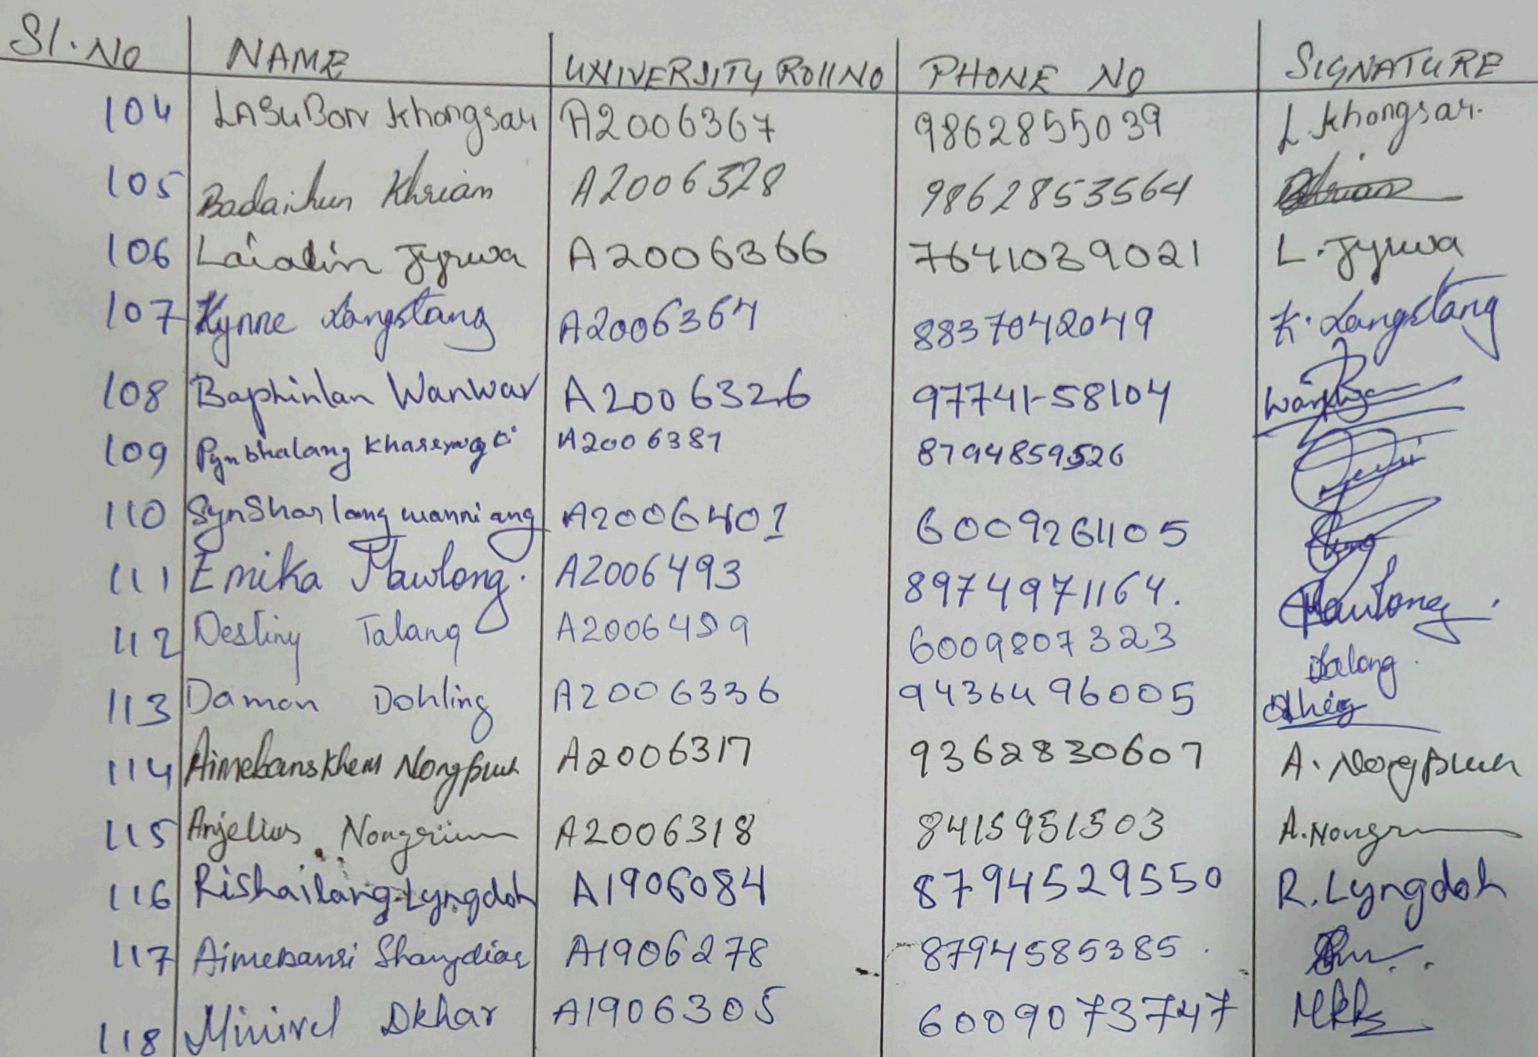 Sl. No NAME UNIVERSITY Roll NO PHONE NO SIGNATURE
104 LASuBon Khongsar A2006367 9862855039 L. Khongsar.
105 Badaihun Khriam A2006328 9862853564
106 Laialin Jyrwa A2006366 7641039021 L. Jyrwa
107 Kynne Langstang A2006364 8837042049 K. Langstang
108 Baphinlan Wanwar A2006326 97741-58104
109 Pynbhalang A2006387 8794859526
110 SynShar lang wanniang A2006401 6009261105
111 Emika Mawlong. A2006493 8974971164. Mawlong.
112 Destiny Talang A2006499 6009807323 Talang.
113 Damon Dohling A2006336 9436496005
114 Aimebanskhem Nongpluh A2006317 9362830607 A. Nongpluh
115 Anjelius Nongrum A2006318 8415951503 A. Nongrum
116 Rishailang Lyngdoh A1906084 8794529550 R. Lyngdoh
117 Aimebansi Shangdiar A1906278 8794585385
118 Minirel Dkhar A1906305 6009073747